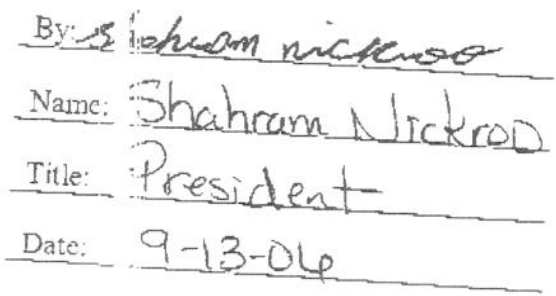 By: Shahram nickroo
Name: Shahram Nickrob
Title: President
Date: 9-13-06